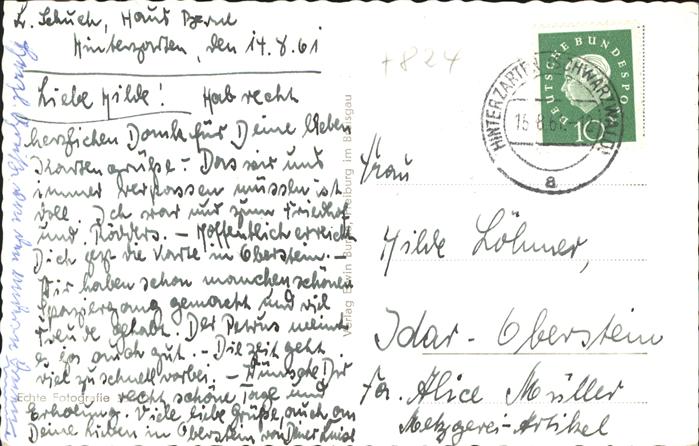 Hinterzarten, den 14.8.61
Liebe Hilde! Hab recht
herzlichen Dank für Deine lieben
Kartengrüße. Das wir uns
immer verpassen müssen ist
doll. Ich war und zum Friedhof
und Rödders. – Hoffentlich erreicht
Dich jetzt die Karte in Oberstein. –
Wir haben schon manchen schönen
Spaziergang gemacht und viel
Freude gehabt. Der Petrus meint
es ja auch gut. – Die Zeit geht
viel zu schnell vorbei. – Wünsche Dir
recht schöne Tage und
Erholung. Viele liebe Grüße, auch an
Deine Lieben in Oberstein von Deiner Luise
Echte Fotografie
Verlag Erwin Burda, Freiburg im Breisgau
+824
DEUTSCHE BUNDESPOST
10
HINTERZARTEN (SCHWARZWALD)
15.8.61
a
Frau
Hilde Löhmer,
Idar-Oberstein
Fa. Alice Müller
Metzgerei-Artikel